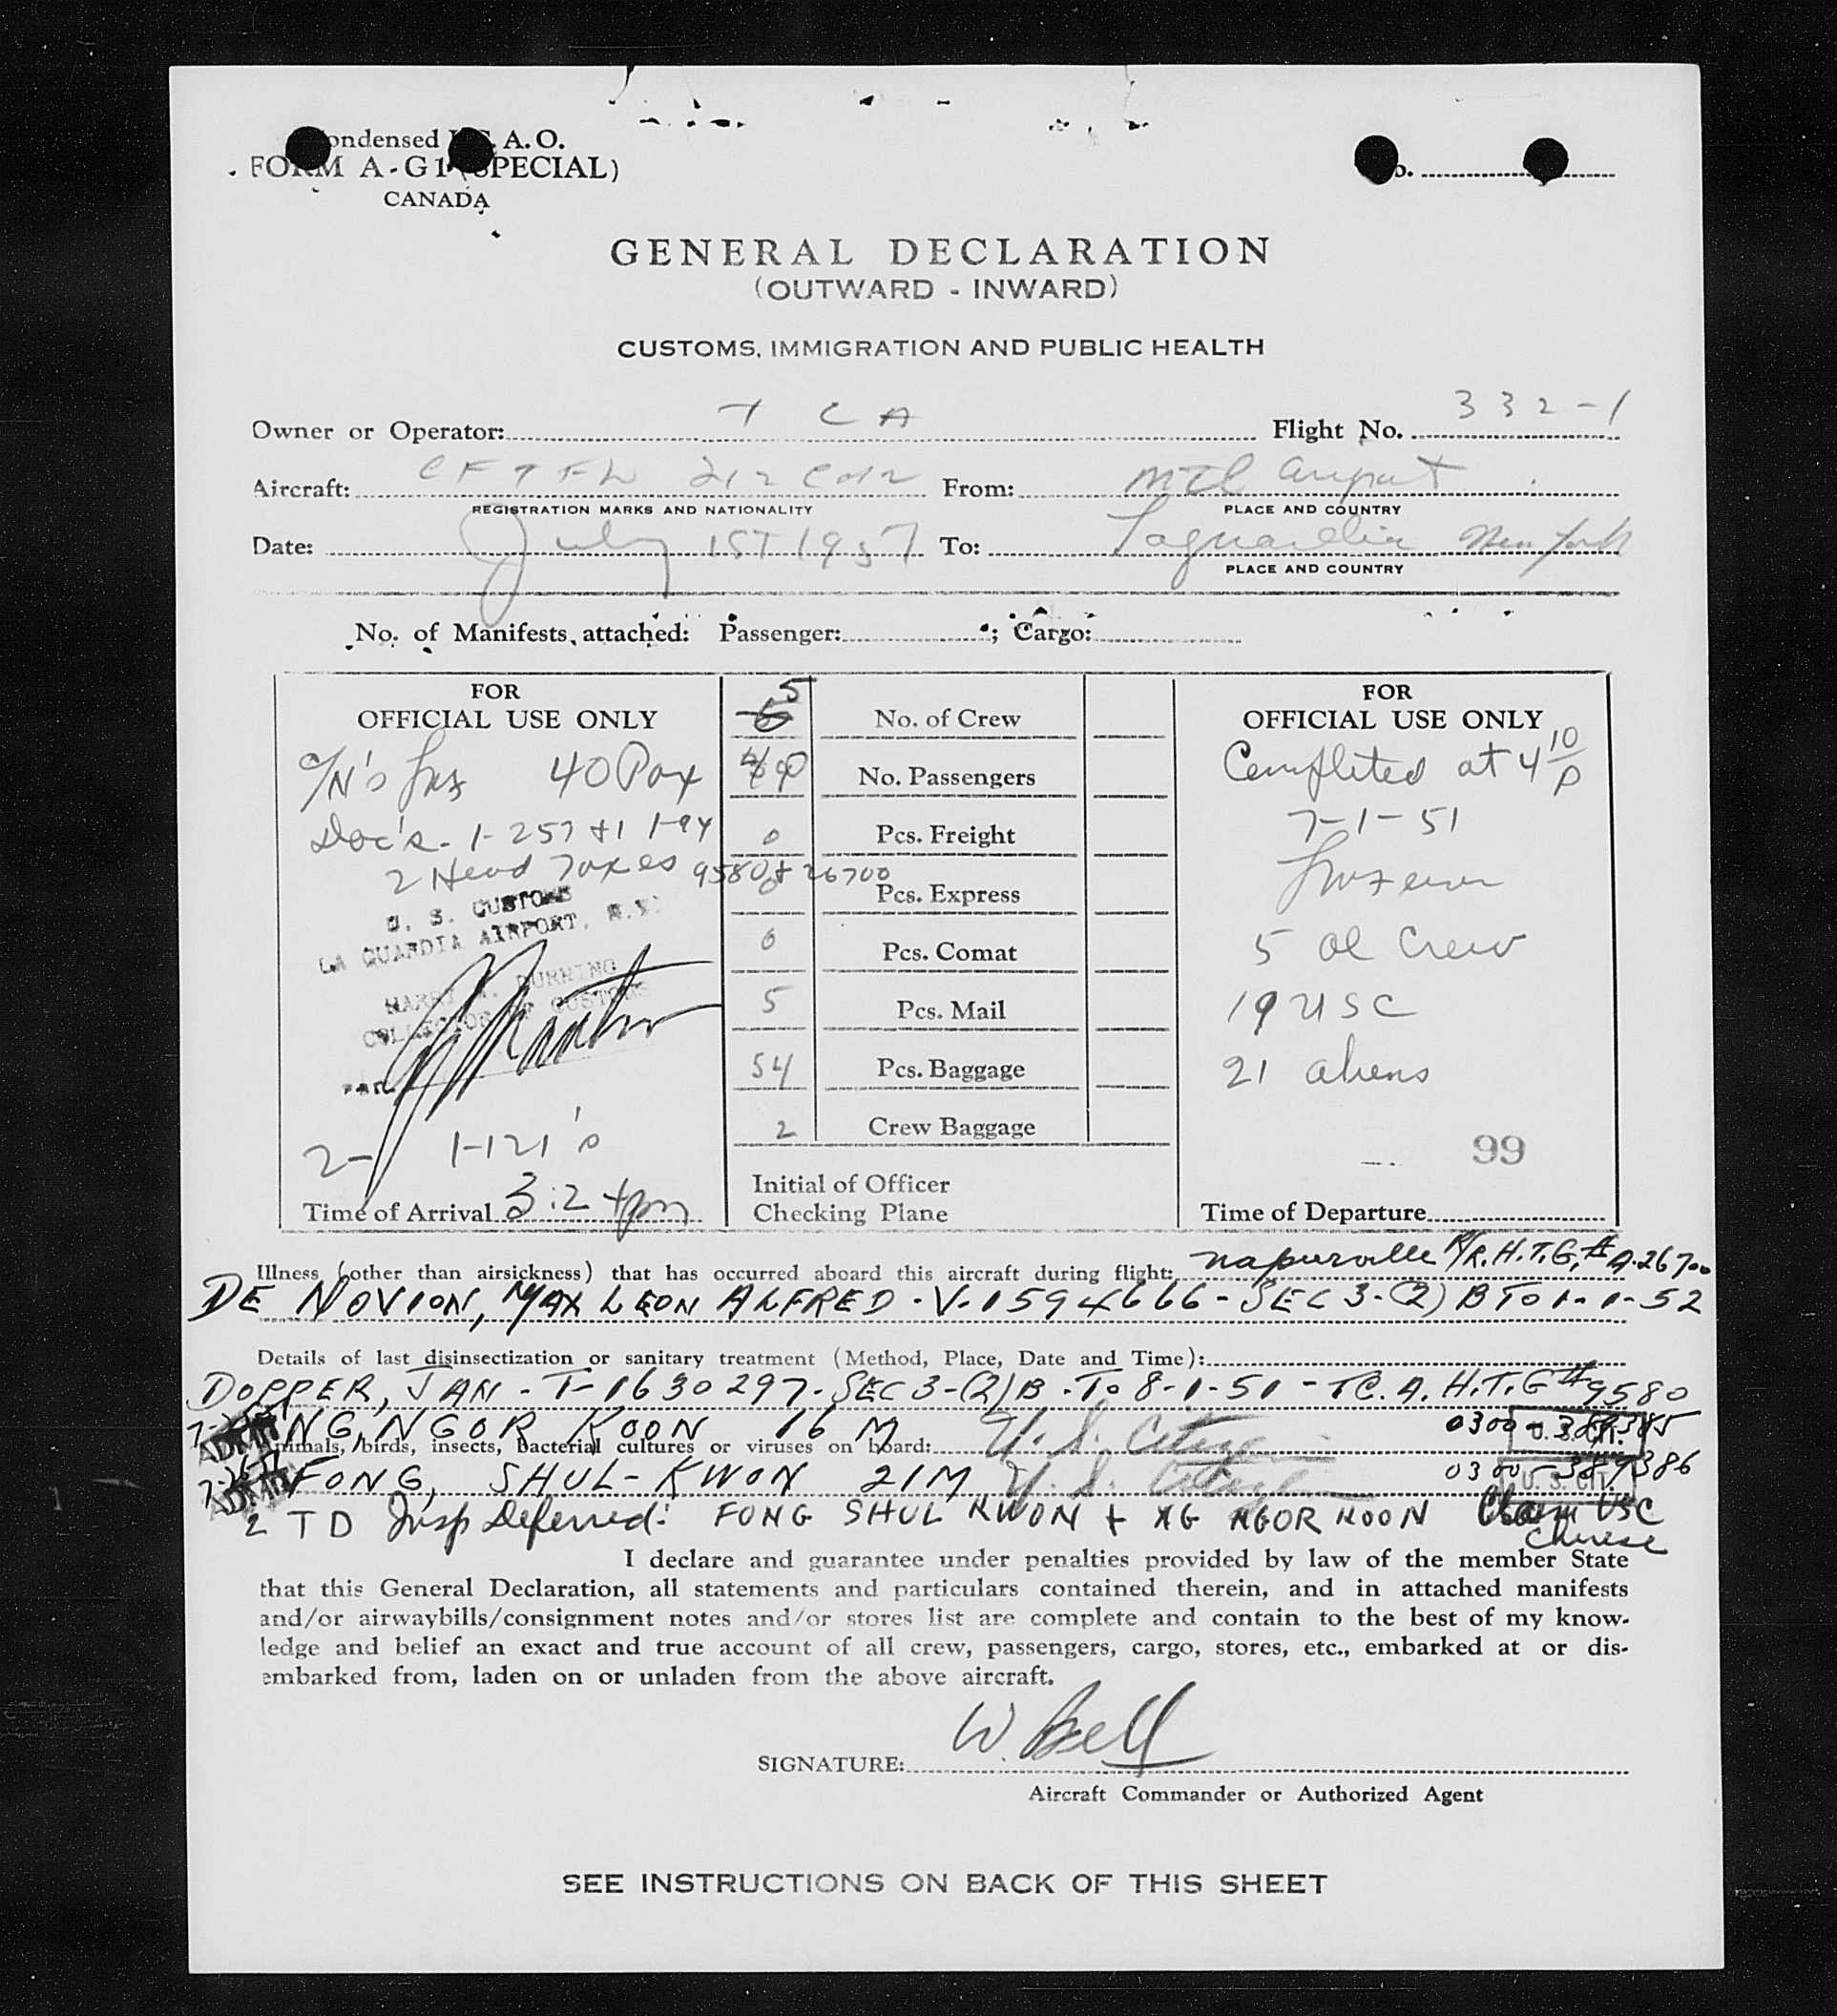 Condensed I.C.A.O.
FORM A-G1 (SPECIAL)
CANADA
No.
GENERAL DECLARATION
(OUTWARD - INWARD)
CUSTOMS, IMMIGRATION AND PUBLIC HEALTH
Owner or Operator: T C A Flight No. 332-1
Aircraft: CFTFW 212 From: MTL Airport
REGISTRATION MARKS AND NATIONALITY PLACE AND COUNTRY
Date: July 1ST 1951 To: Laguardia New York
PLACE AND COUNTRY
No. of Manifests attached: Passenger: ; Cargo:
FOR
OFFICIAL USE ONLY
40 Pax
Doc's - 1-257 +1 1-94
2 Head Taxes 9580 + 26700
U. S. CUSTOMS
LA GUARDIA AIRPORT, N.Y.
HARRY M. DURNING
COLLECTOR OF CUSTOMS
2- 1-121's
Time of Arrival 3:24pm
5 No. of Crew
40 No. Passengers
0 Pcs. Freight
0 Pcs. Express
0 Pcs. Comat
5 Pcs. Mail
54 Pcs. Baggage
2 Crew Baggage
Initial of Officer
Checking Plane
FOR
OFFICIAL USE ONLY
Completed at 4 10/P
7-1-51
5 al Crew
19 USC
21 aliens
99
Time of Departure
Illness (other than airsickness) that has occurred aboard this aircraft during flight: R/R. H.T.G. # A.26700
DE NOVION, MAX LEON ALFRED - V-1594666 - SEC 3-(2) B TO 1-1-52
Details of last disinsectization or sanitary treatment (Method, Place, Date and Time):
DOPPER, JAN - T-1630297 - SEC 3-(2) B - TO 8-1-51 - TC. A. H.T.G # 9580
ADMTD NG, NGOR KOON 16 M U. S. Citizen 0300-389385
U. S. CIT.
Animals, birds, insects, bacterial cultures or viruses on board:
ADMTD FONG, SHUL-KWON 21M U. S. Citizen 0300-389386
U. S. CIT.
2 T D Insp Deferred: FONG SHUL KWON + NG NGOR KOON Claim USC
Chinese
I declare and guarantee under penalties provided by law of the member State
that this General Declaration, all statements and particulars contained therein, and in attached manifests
and/or airwaybills/consignment notes and/or stores list are complete and contain to the best of my know-
ledge and belief an exact and true account of all crew, passengers, cargo, stores, etc., embarked at or dis-
embarked from, laden on or unladen from the above aircraft.
SIGNATURE: W. Bell
Aircraft Commander or Authorized Agent
SEE INSTRUCTIONS ON BACK OF THIS SHEET